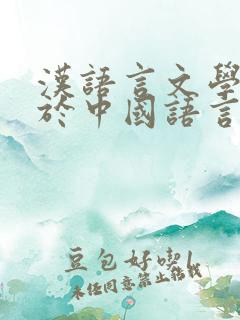 漢語言文學
於中國語言
豆包好喫
未經同意禁止轉載